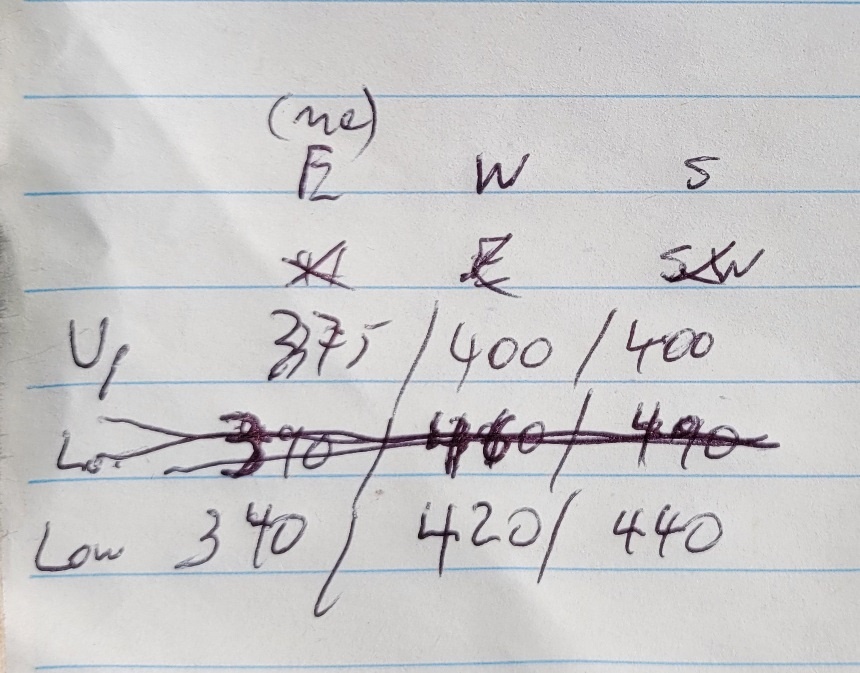 (ne)
E W S
E SW
Up 375 / 400 / 400
Lo. 390 / 460 / 490
Low 340 / 420 / 440